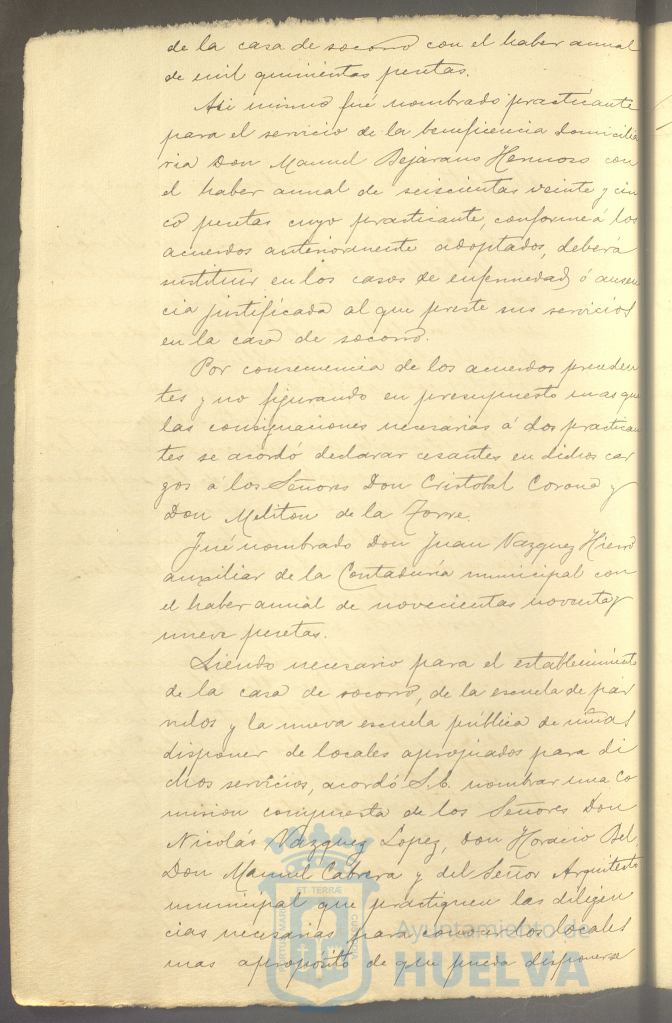 de la casa de socorro con el haber anual
de mil quinientas pesetas.
Asi mismo fué nombrado practicante
para el servicio de la beneficencia domicilia
ria Don Manuel Bejarano Hermoso con
el haber anual de seiscientas veinte y cin
co pesetas cuyo practicante, conforme á los
acuerdos anteriormente adoptados, deberá
sustituir en los casos de enfermedad ó ausen
cia justificada al que preste sus servicios
en la casa de socorro.
Por consecuencia de los acuerdos preceden
tes y no figurando en presupuesto mas que
las consignaciones necesarias á dos practican
tes se acordó declarar cesantes en dichos car
gos á los Señores Don Cristobal Corona y
Don Meliton de la Torre.
Fué nombrado Don Juan Vazquez Hierro
auxiliar de la Contaduría municipal con
el haber anual de novecientas noventa y
nueve pesetas.
Siendo necesario para el establecimiento
de la casa de socorro, de la escuela de pár
vulos y la nueva escuela pública de niñas
disponer de locales apropiados para di
chos servicios, acordó S.E. nombrar una co
mision compuesta de los Señores Don
Nicolás Vazquez Lopez, Don Horacio Bel,
Don Manuel Cabrera y del Señor Arquitecto
municipal que practiquen las diligen
cias necesarias para conocer los locales
mas aproposito de que pueda disponerse
ET TERRÆ
Ayuntamiento de
HUELVA